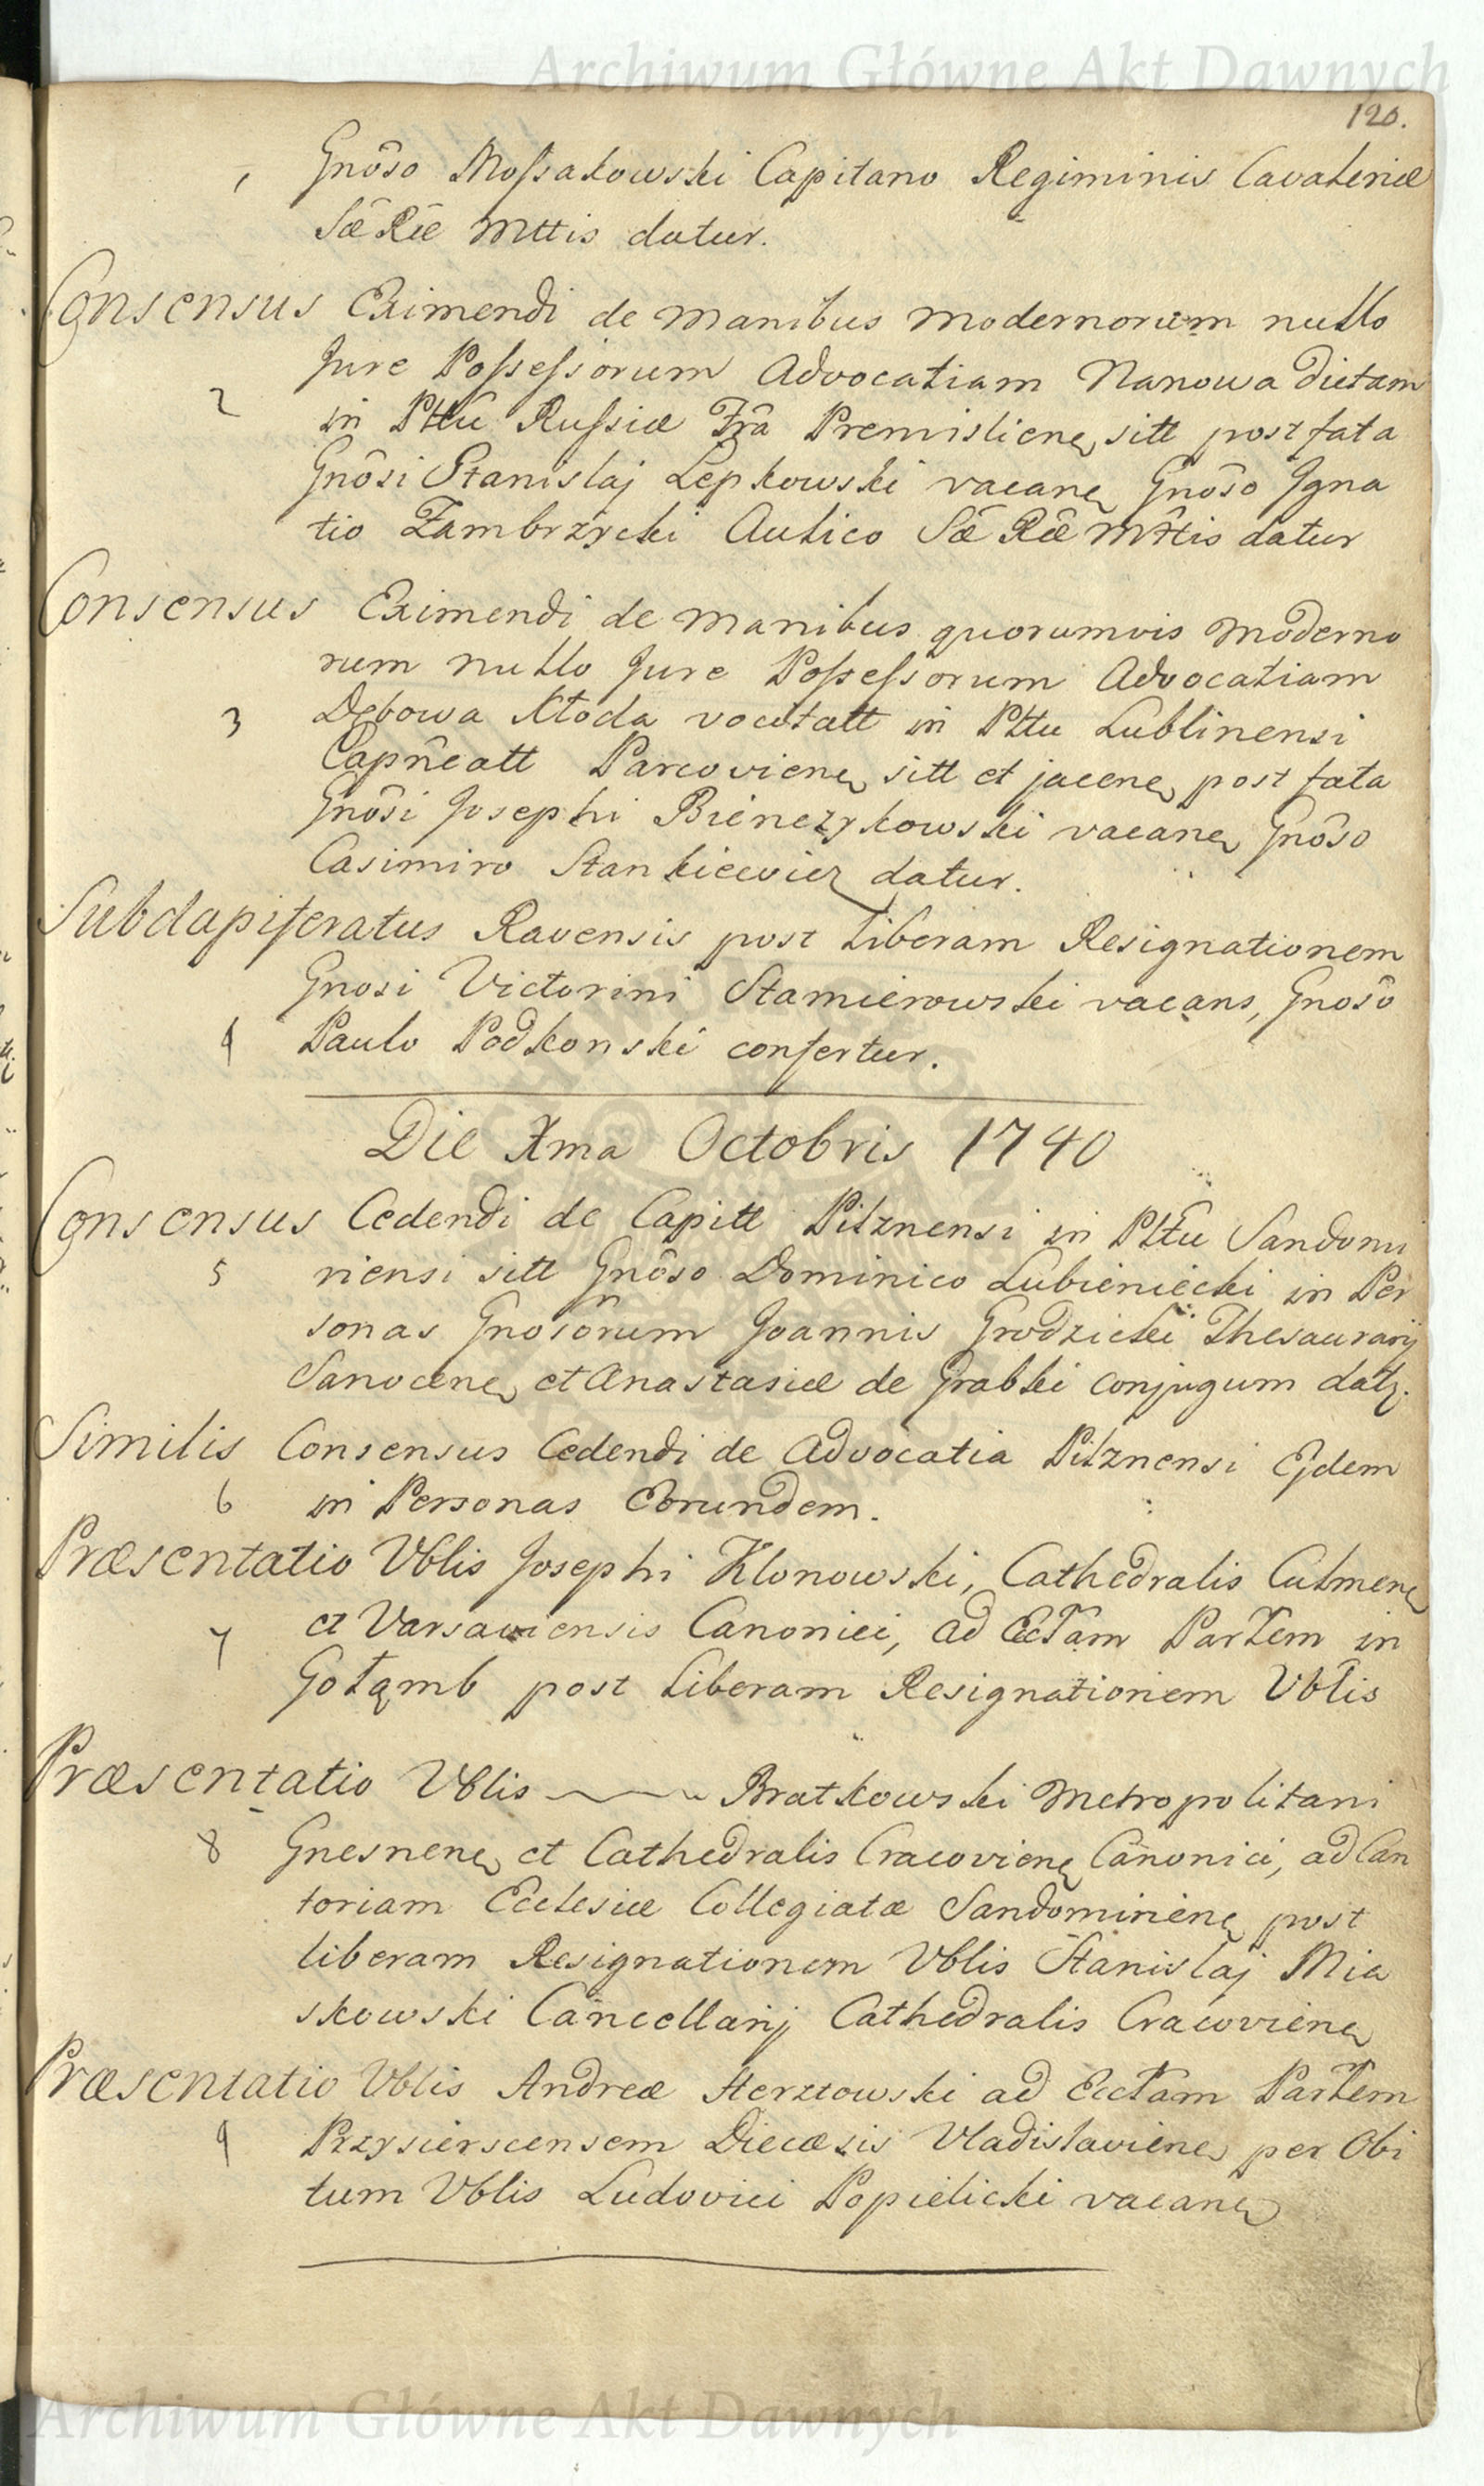 Archiwum Główne Akt Dawnych
120.
1 Gnôso Moſsakowski Capitano Regiminis Cavaleriæ
Sæ Ræ Mttis datur.
Consensus Eximendi de manibus modernorum nullo
Jure Poſseſsorum Advocatiam Nanowa dictam
2 in Pttû Ruſsiæ Trâ Premislien, sitt post fata
Gnôsi Stanislaj Lepkowski vacan, Gnôso Igna
tio Zambrzycki Aulico Sæ Ræ Mttis datur
Consensus Eximendi de manibus quorumvis moderno
rum nullo Jure Poſseſsorum Advocatiam
3 Dębowa Kłoda vocitatt in Pttu Lublinensi
Capnêatt Parcovien, sitt et jacen, post fata
Gnôsi Josephi Bienczykowski vacan, Gnôso
Casimiro Stankiewicz datur.
Subdapiferatus Ravensis post liberam Resignationem
Gnosi Victorini Stamierowski vacans, Gnosô
4 Paulo Podkonski confertur.
Die Xma Octobris 1740
Consensus Cedendi de Capitt Pilznensi in Pttu Sandomi
5 riensi sitt Gnôso Dominico Lubieniecki in Per
sonas Gnosorum Joannis Grodzicki Thesaurarij
Sanocen, et Anastasiæ de Grabki conjugum datz.
Similis Consensus Cedendi de Advocatia Pilznensi Ejdem
6 in Personas Eorundem.
Præsentatio Vblis Josephi Klonowski, Cathedralis Culmen,
7 et Varsaviensis Canonici, ad Ecctam Partem in
Gołąmb post liberam Resignationem Vblis
Præsentatio Vblis ~~~ Bratkowski Metropolitani
8 Gnesnen, et Cathedralis Cracovien, Canonici, ad Can
toriam Ecclesiæ Collegiatæ Sandomirien, post
liberam Resignationem Vblis Stanislaj Mia
skowski Cancellarij Cathedralis Cracovien,
Præsentatio Vblis Andreæ Herztowski ad Ecctam Partem
9 Przysierscensem Diecæzis Vladislavien, per Obi
tum Vblis Ludovici Popielicki vacan,
Archiwum Główne Akt Dawnych